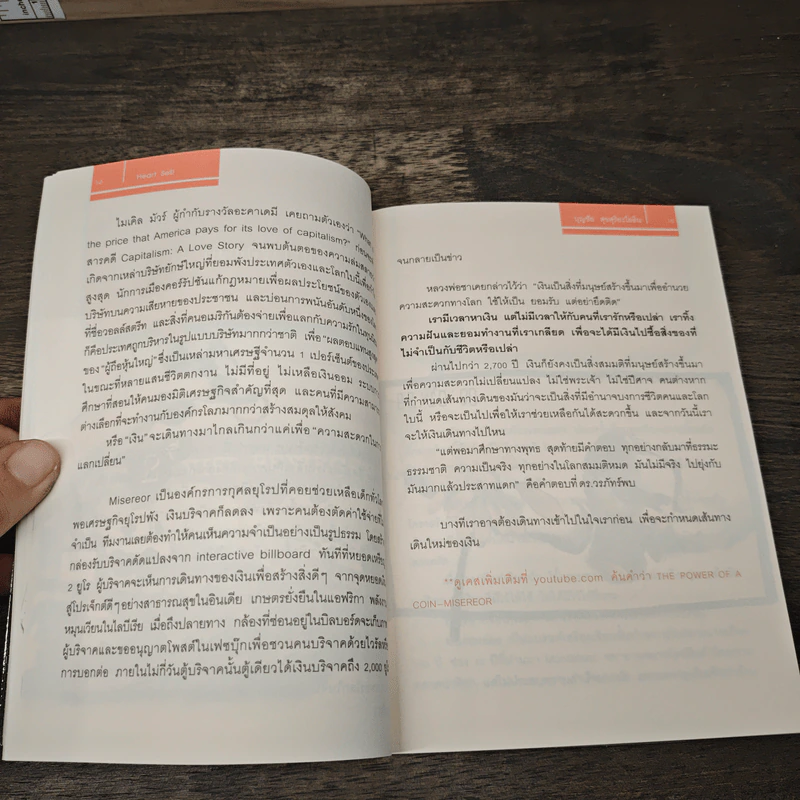 Heart Sell
ไมเคิล มัวร์ ผู้กำกับรางวัลอะคาเดมี เคยถามตัวเองว่า "What
the price that America pays for its love of capitalism?" ก่อน
สารคดี Capitalism: A Love Story จนพบต้นตอของความล่มสลาย
เกิดจากเหล่าบริษัทยักษ์ใหญ่ที่ยอมพังประเทศตัวเองและโลกใบนี้เพื่อ
สูงสุด นักการเมืองคอร์รัปชันแก้กฎหมายเพื่อผลประโยชน์ของตัวเอง
บริษัทบนความเสียหายของประชาชน และบ่อนการพนันอันดับหนึ่งของ
ที่ชื่อวอลล์สตรีท และสิ่งที่คนอเมริกันต้องจ่ายเพื่อแลกกับความรักในทุนนิยม
ก็คือประเทศถูกบริหารในรูปแบบบริษัทมากกว่าชาติ เพื่อ "ผลตอบแทนสูงสุด
ของ "ผู้ถือหุ้นใหญ่" ซึ่งเป็นเหล่ามหาเศรษฐีจำนวน 1 เปอร์เซ็นต์ของประเทศ
ในขณะที่หลายแสนชีวิตตกงาน ไม่มีที่อยู่ ไม่เหลือเงินออม ระบบ
ศึกษาที่สอนให้คนมองมิติเศรษฐกิจสำคัญที่สุด และคนที่มีความสามารถ
ต่างเลือกที่จะทำงานกับองค์กรโลภมากกว่าสร้างสมดุลให้สังคม
หรือ "เงิน" จะเดินทางมาไกลเกินกว่าแค่เพื่อ "ความสะดวกในการ
แลกเปลี่ยน"
Misereor เป็นองค์กรการกุศลยุโรปที่คอยช่วยเหลือเด็กทั่วโลก
พอเศรษฐกิจยุโรปพัง เงินบริจาคก็ลดลง เพราะคนต้องตัดค่าใช้จ่ายที่ไม่
จำเป็น ทีมงานเลยต้องทำให้คนเห็นความจำเป็นอย่างเป็นรูปธรรม โดยสร้าง
กล่องรับบริจาคดัดแปลงจาก interactive billboard ทันทีที่หยอดเหรียญ
2 ยูโร ผู้บริจาคจะเห็นการเดินทางของเงินเพื่อสร้างสิ่งดีๆ จากจุดหยอดเงิน
สู่โปรเจ็กต์ดีๆ อย่างสาธารณสุขในอินเดีย เกษตรยั่งยืนในแอฟริกา พลังงาน
หมุนเวียนในไลบีเรีย เมื่อถึงปลายทาง กล้องที่ซ่อนอยู่ในบิลบอร์ดจะเก็บภาพ
ผู้บริจาคและขออนุญาตโพสต์ในเฟซบุ๊กเพื่อชวนคนบริจาคด้วยไวรัล
การบอกต่อ ภายในไม่กี่วันตู้บริจาคนั้นตู้เดียวได้เงินบริจาคถึง 2,000 ยูโร
จนกลายเป็นข่าว
หลวงพ่อชาเคยกล่าวไว้ว่า "เงินเป็นสิ่งที่มนุษย์สร้างขึ้นมาเพื่ออำนวย
ความสะดวกทางโลก ใช้ให้เป็น ยอมรับ แต่อย่ายึดติด"
เรามีเวลาหาเงิน แต่ไม่มีเวลาให้กับคนที่เรารักหรือเปล่า เราทิ้ง
ความฝันและยอมทำงานที่เราเกลียด เพื่อจะได้มีเงินไปซื้อสิ่งของที่
ไม่จำเป็นกับชีวิตหรือเปล่า
ผ่านไปกว่า 2,700 ปี เงินก็ยังคงเป็นสิ่งสมมติที่มนุษย์สร้างขึ้นมา
เพื่อความสะดวกไม่เปลี่ยนแปลง ไม่ใช่พระเจ้า ไม่ใช่ปีศาจ คนต่างหาก
ที่กำหนดเส้นทางเดินของมันว่าจะเป็นสิ่งที่มีอำนาจบงการชีวิตคนและโลก
ใบนี้ หรือจะเป็นไปเพื่อให้เราช่วยเหลือกันได้สะดวกขึ้น และจากวันนี้เรา
จะให้เงินเดินทางไปไหน
"แต่พอมาศึกษาทางพุทธ สุดท้ายมีคำตอบ ทุกอย่างกลับมาที่ธรรมะ
ธรรมชาติ ความเป็นจริง ทุกอย่างในโลกสมมติหมด มันไม่มีจริง ไปยุ่งกับ
มันมากแล้วประสาทแดก" คือคำตอบที่ ดร.วรภัทร์พบ
บางทีเราอาจต้องเดินทางเข้าไปในใจเราก่อน เพื่อจะกำหนดเส้นทาง
เดินใหม่ของเงิน
**ดูเคสเพิ่มเติมที่ youtube.com ค้นคำว่า THE POWER OF A
COIN-MISEREOR